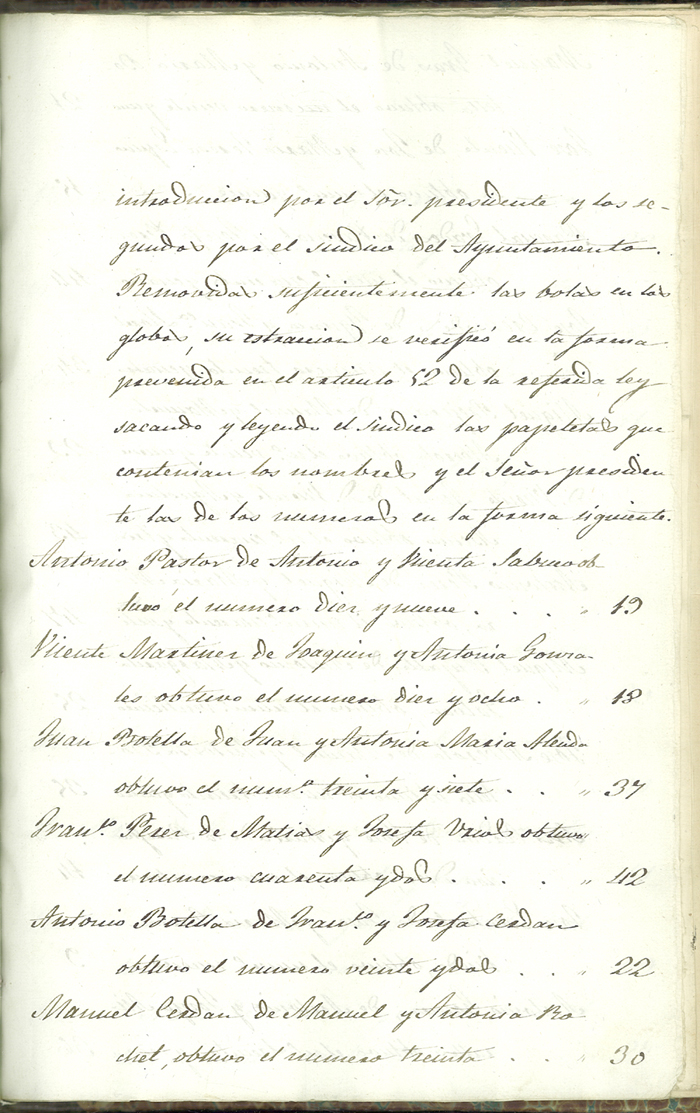 introduccion por el Sōr. presidente y los se-
gundos por el sindico del Ayuntamiento.
Removidas suficientemente las bolas en los
globos, su estraccion se verificó en la forma
prevenida en el articulo 52 de la referida ley
sacando y leyendo el sindico las papeletas que
contenian los nombres y el Señor presiden
te las de los numeros en la forma siguiente.
Antonio Pastor de Antonio y Vicenta Sabuco ob
tuvo el numero diez y nueve . . . . " 19
Vicente Martinez de Joaquin y Antonia Gonza-
les obtuvo el numero diez y ocho . " 18
Juan Botella de Juan y Antonia Maria Alenda
obtuvo el num.o treinta y siete . . " 37
Fran.co Perez de Matias y Josefa Urios obtuvo
el numero cuarenta y dos . . . " 42
Antonio Botella de Fran.co y Josefa Cerdan
obtuvo el numero veinte y dos . . " 22
Manuel Cerdan de Manuel y Antonia Ro
chet, obtuvo el numero treinta . . " 30